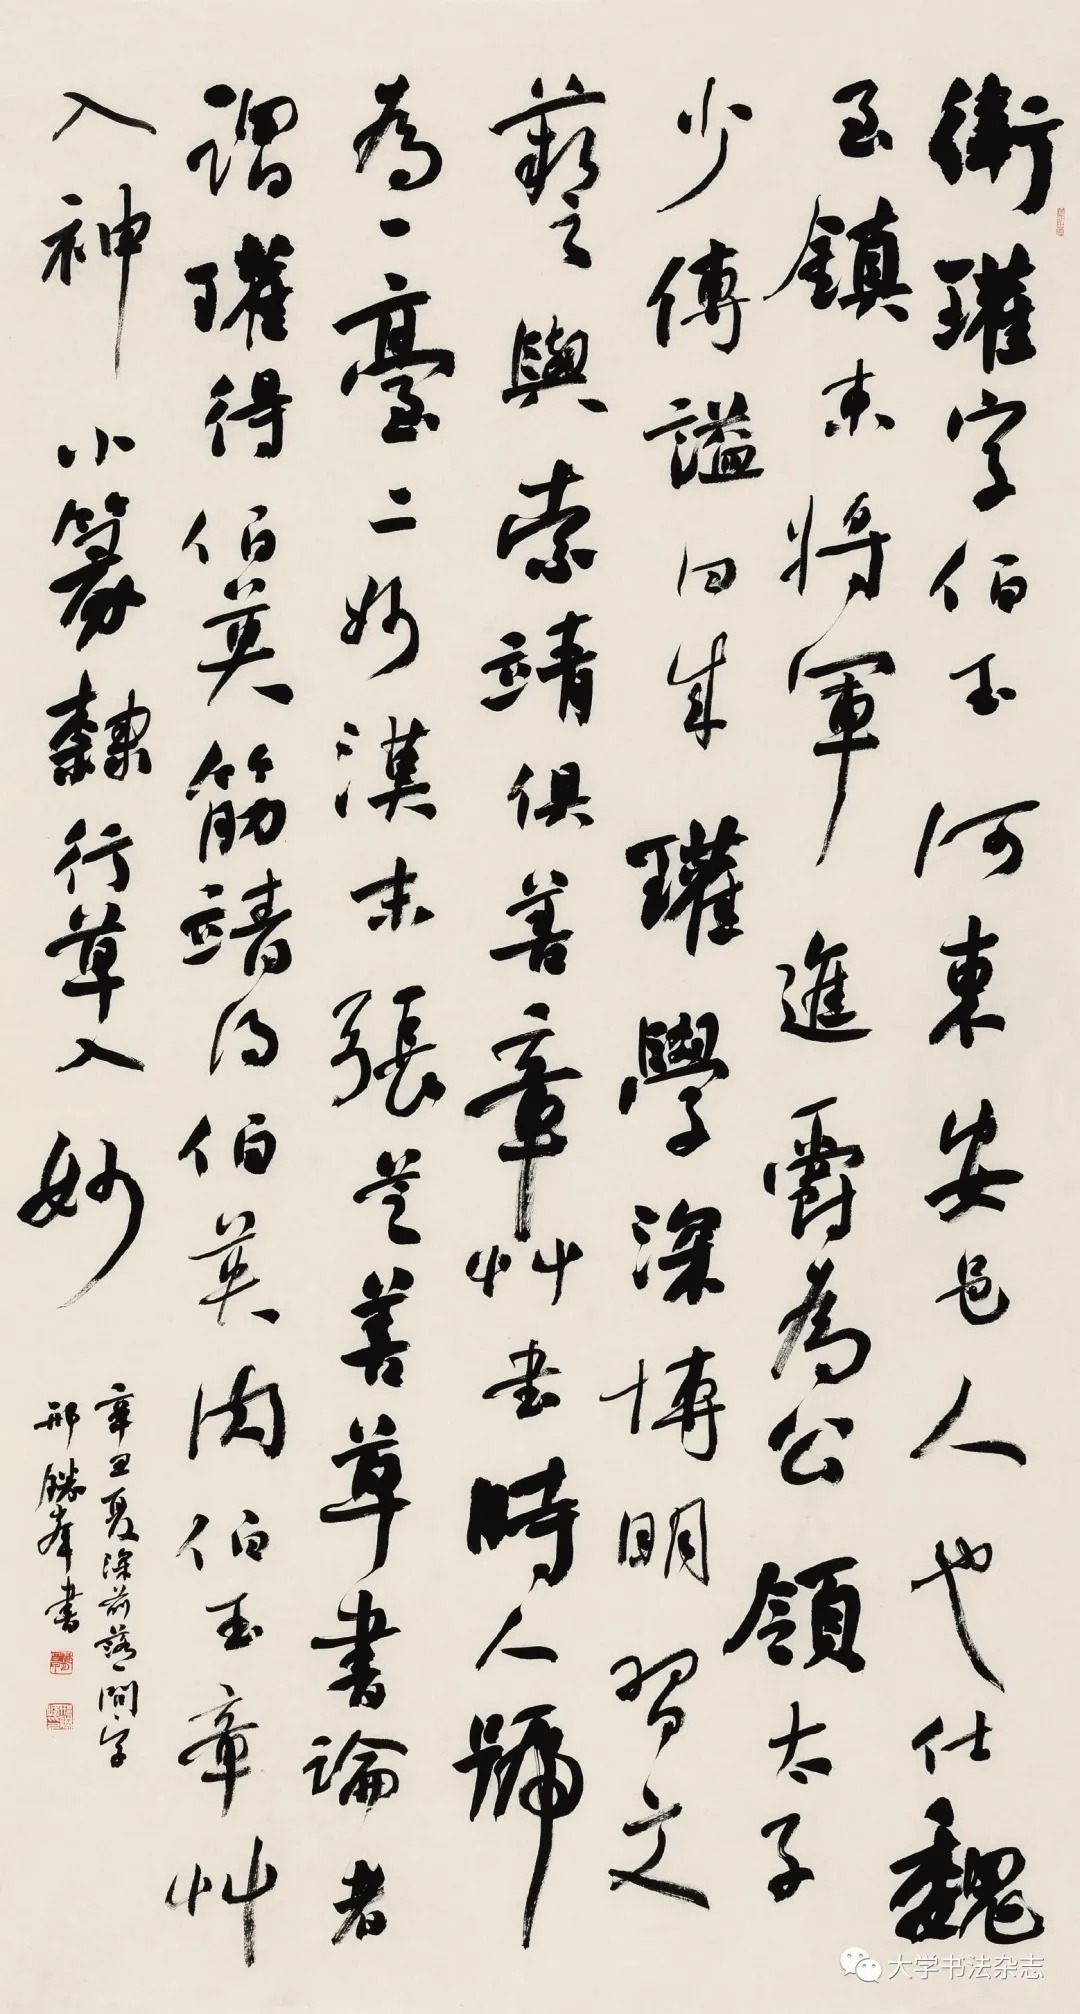 衛瓘字伯玉河東安邑人也仕魏
至鎮東將軍進爵為公領太子
少傅謚曰成瓘學深博明習文
藝與索靖俱善章艸書時人號
為一臺二妙漢末張芝善草書論者
謂瓘得伯英筋靖得伯英肉伯玉章艸
入神小篆隸行草入妙
辛丑夏深前落一間字
邢勝峯書
大学书法杂志